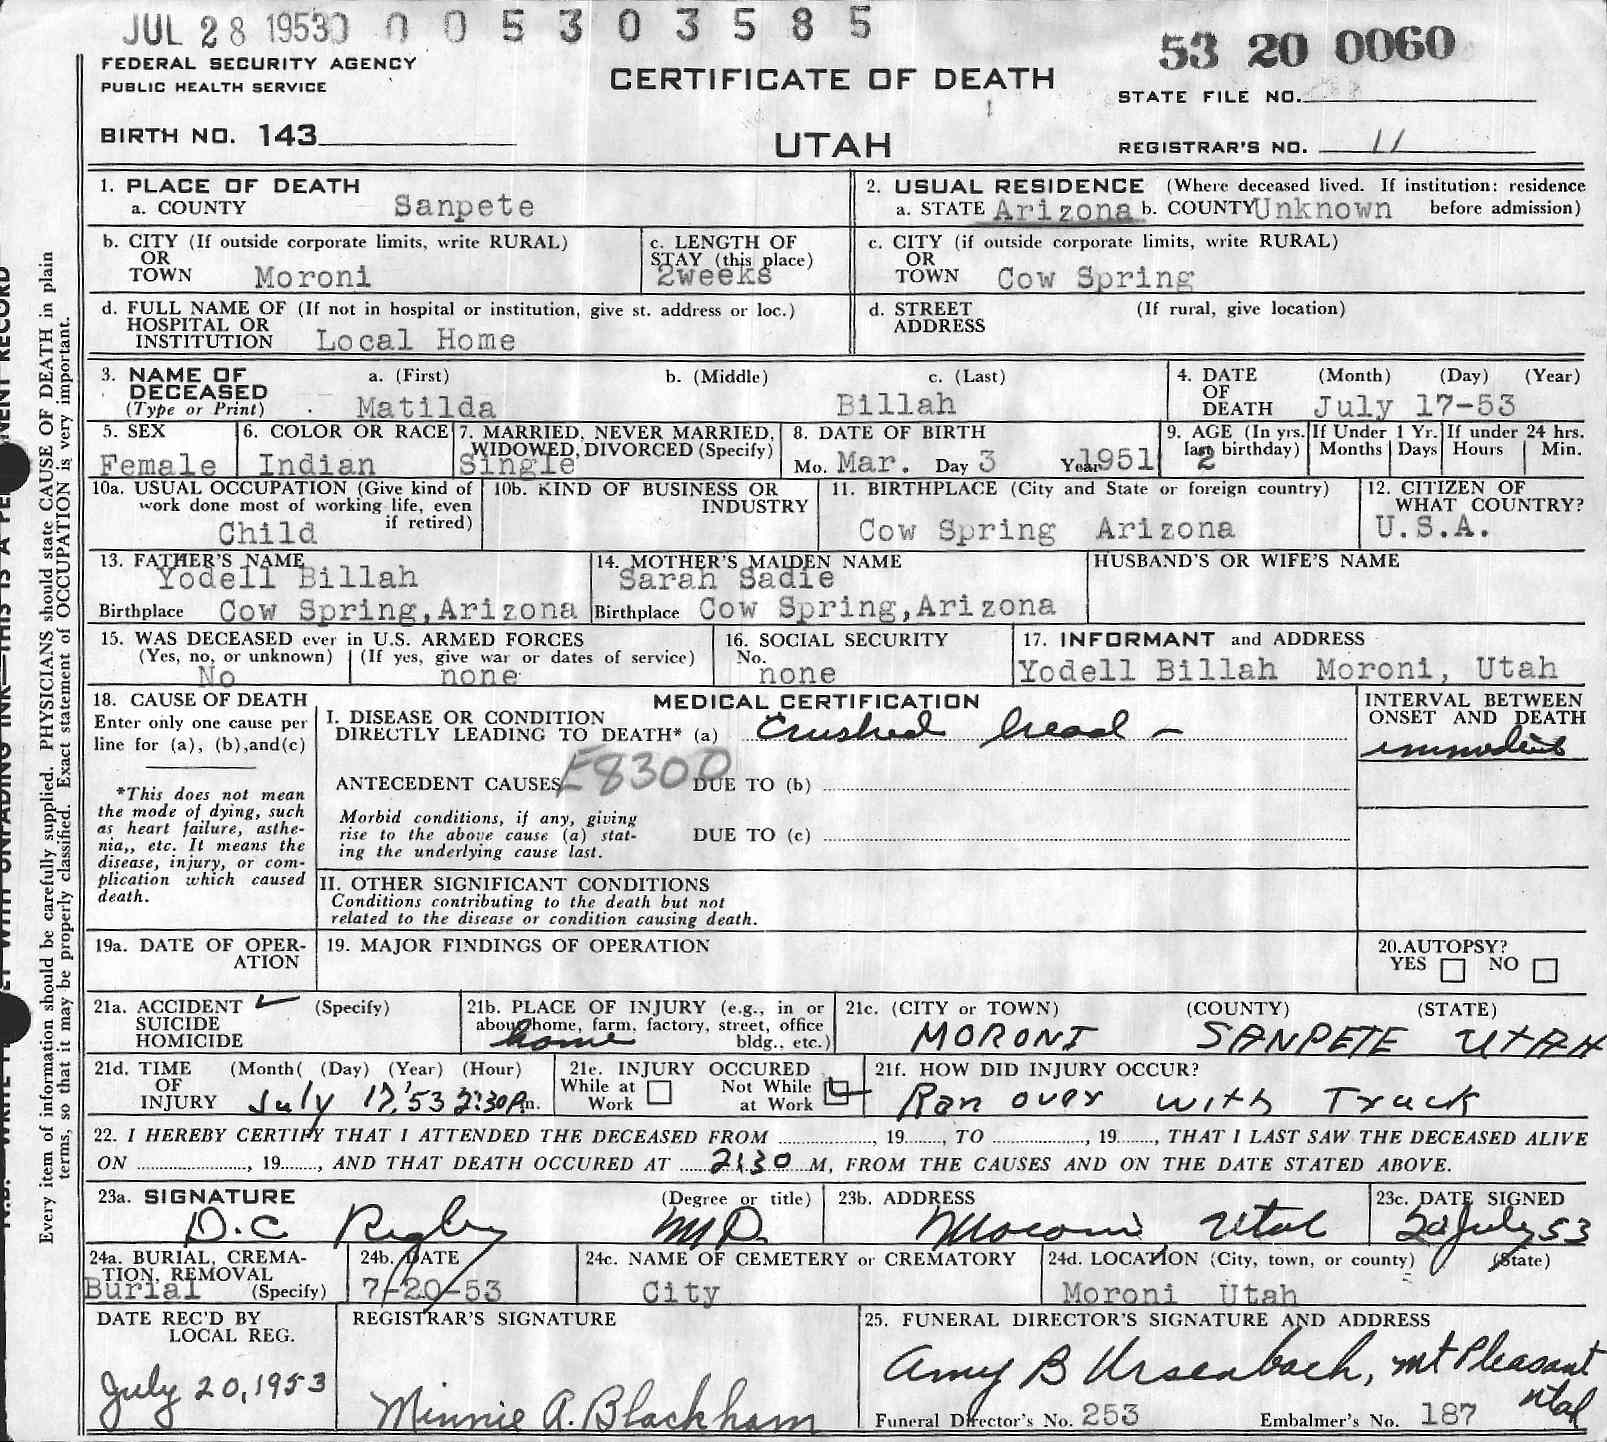 JUL 28 1953 0 0 0 5 3 0 3 5 8 5
53 20 0060
FEDERAL SECURITY AGENCY
PUBLIC HEALTH SERVICE
CERTIFICATE OF DEATH
STATE FILE NO.
BIRTH NO. 143
UTAH
REGISTRAR'S NO. 11
1. PLACE OF DEATH
a. COUNTY Sanpete
2. USUAL RESIDENCE (Where deceased lived. If institution: residence
a. STATE Arizona b. COUNTY Unknown before admission)
b. CITY (If outside corporate limits, write RURAL)
OR
TOWN Moroni
c. LENGTH OF
STAY (this place)
2weeks
c. CITY (if outside corporate limits, write RURAL)
OR
TOWN Cow Spring
d. FULL NAME OF (If not in hospital or institution, give st. address or loc.)
HOSPITAL OR
INSTITUTION Local Home
d. STREET (If rural, give location)
ADDRESS
3. NAME OF a. (First) b. (Middle) c. (Last)
DECEASED
(Type or Print) Matilda Billah
4. DATE (Month) (Day) (Year)
OF
DEATH July 17-53
5. SEX
Female
6. COLOR OR RACE
Indian
7. MARRIED, NEVER MARRIED,
WIDOWED, DIVORCED (Specify)
Single
8. DATE OF BIRTH
Mo. Mar. Day 3 Year 1951
9. AGE (In yrs.
last birthday)
2
If Under 1 Yr.
Months Days
If under 24 hrs.
Hours Min.
10a. USUAL OCCUPATION (Give kind of
work done most of working life, even
if retired)
Child
10b. KIND OF BUSINESS OR
INDUSTRY
11. BIRTHPLACE (City and State or foreign country)
Cow Spring Arizona
12. CITIZEN OF
WHAT COUNTRY?
U.S.A.
13. FATHER'S NAME
Yodell Billah
Birthplace Cow Spring,Arizona
14. MOTHER'S MAIDEN NAME
Sarah Sadie
Birthplace Cow Spring,Arizona
HUSBAND'S OR WIFE'S NAME
15. WAS DECEASED ever in U.S. ARMED FORCES
(Yes, no, or unknown) (If yes, give war or dates of service)
No none
16. SOCIAL SECURITY
No.
none
17. INFORMANT and ADDRESS
Yodell Billah Moroni, Utah
18. CAUSE OF DEATH
Enter only one cause per
line for (a), (b),and(c)
*This does not mean
the mode of dying, such
as heart failure, asthe-
nia,, etc. It means the
disease, injury, or com-
plication which caused
death.
MEDICAL CERTIFICATION
I. DISEASE OR CONDITION
DIRECTLY LEADING TO DEATH* (a) Crushed head –
ANTECEDENT CAUSES E8300 DUE TO (b)
Morbid conditions, if any, giving
rise to the above cause (a) stat-
ing the underlying cause last.
DUE TO (c)
INTERVAL BETWEEN
ONSET AND DEATH
II. OTHER SIGNIFICANT CONDITIONS
Conditions contributing to the death but not
related to the disease or condition causing death.
19a. DATE OF OPER-
ATION
19. MAJOR FINDINGS OF OPERATION
20.AUTOPSY?
YES NO
21a. ACCIDENT ✓ (Specify)
SUICIDE
HOMICIDE
21b. PLACE OF INJURY (e.g., in or
about home, farm, factory, street, office
bldg., etc.)
home
21c. (CITY or TOWN) (COUNTY) (STATE)
MORONI SANPETE UTAH
21d. TIME (Month( (Day) (Year) (Hour)
OF
INJURY July 17, '53 2:30 P.m.
21e. INJURY OCCURED
While at Work Not While at Work
21f. HOW DID INJURY OCCUR?
Ran over with Truck
22. I HEREBY CERTIFY THAT I ATTENDED THE DECEASED FROM , 19 , TO , 19 , THAT I LAST SAW THE DECEASED ALIVE
ON , 19 , AND THAT DEATH OCCURED AT 2:30 M, FROM THE CAUSES AND ON THE DATE STATED ABOVE.
23a. SIGNATURE (Degree or title)
D.C Rigby MD.
23b. ADDRESS
Moroni Utah
23c. DATE SIGNED
20 July 53
24a. BURIAL, CREMA-
TION, REMOVAL
Burial (Specify)
24b. DATE
7-20-53
24c. NAME OF CEMETERY or CREMATORY
City
24d. LOCATION (City, town, or county) (State)
Moroni Utah
DATE REC'D BY
LOCAL REG.
July 20, 1953
REGISTRAR'S SIGNATURE
Minnie A. Blackham
25. FUNERAL DIRECTOR'S SIGNATURE AND ADDRESS
Amy B Ursenbach, Mt Pleasant
Utah
Funeral Director's No. 253 Embalmer's No. 187
Every item of information should be carefully supplied. PHYSICIANS should state CAUSE OF DEATH in plain
terms, so that it may be properly classified. Exact statement of OCCUPATION is very important.